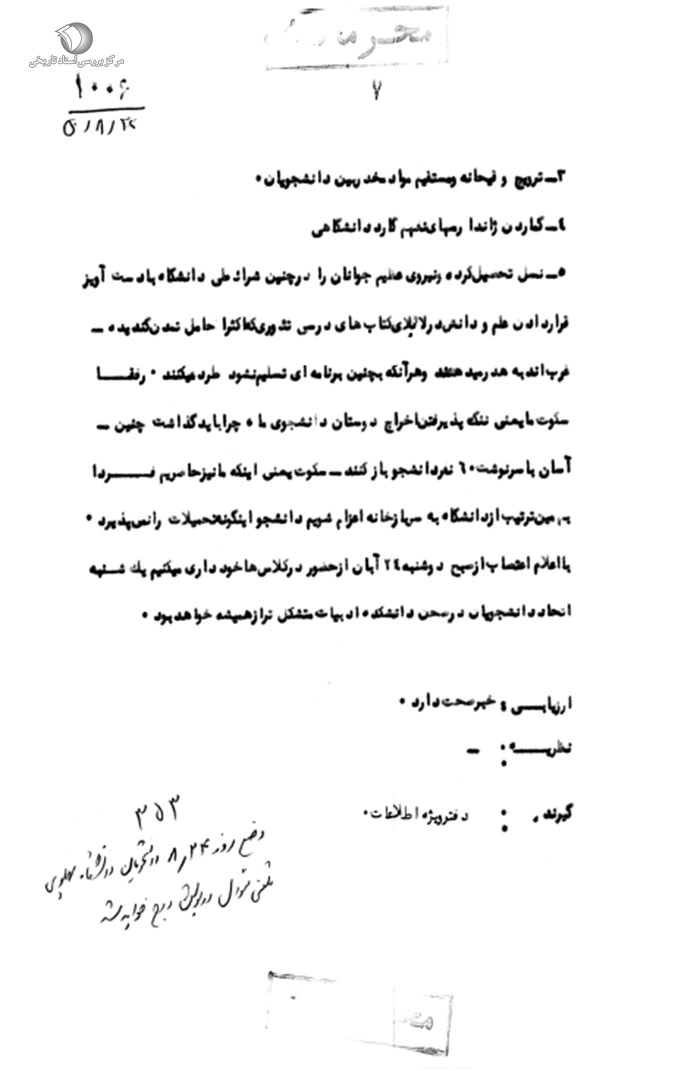 مرکز بررسی اسناد تاریخی
محرمانه
۷
۱۰۰۶
۵/۸/۲۴
۳ـ ترویج وقیحانه ومستقیم مواد مخدر بین دانشجویان۰
٤ـ گماردن ژاندارمهای بنام گارد دانشگاهی
۵ـ نسل تحصیل کرده ونیروی عظیم جوانان را درچنین شرائطی دانشگاه با دست آویز
قراردادن علم و دانش در لابلای کتاب های درسی تئوری که اکثرا حامل تمدن گندیده ـ
غرب اند به هدر میدهند وهرآنکه بچنین برنامه ای تسلیم نشود طرد میکنند ۰ رفقا
سکوت ما یعنی ننگ پذیرفتن اخراج دوستان دانشجوی ما ۰ چرا باید گذاشت چنین ـ
آسان با سرنوشت ٦۰ نفر دانشجو باز کنند ـ سکوت یعنی اینکه ما نیز حاضریم فردا
بهمین ترتیب از دانشگاه به سربازخانه اعزام شویم دانشجو اینگونه تحمیلات را نمی پذیرد ۰
با اعلام اعتصاب از صبح دوشنبه ۲٤ آبان از حضور در کلاس ها خود داری میکنیم یک شنبه
اتحاد دانشجویان در صحن دانشکده ادبیات متشکل تر از همیشه خواهد بود ۰
ارزیابی : خبر صحت دارد ۰
نظریه : ـ
گیرنده : دفتر ویژه اطلاعات۰
۳۵۳
وضع روز ۸/۲۴ دانشجویان دانشگاه پهلوی
تلفنی سؤال